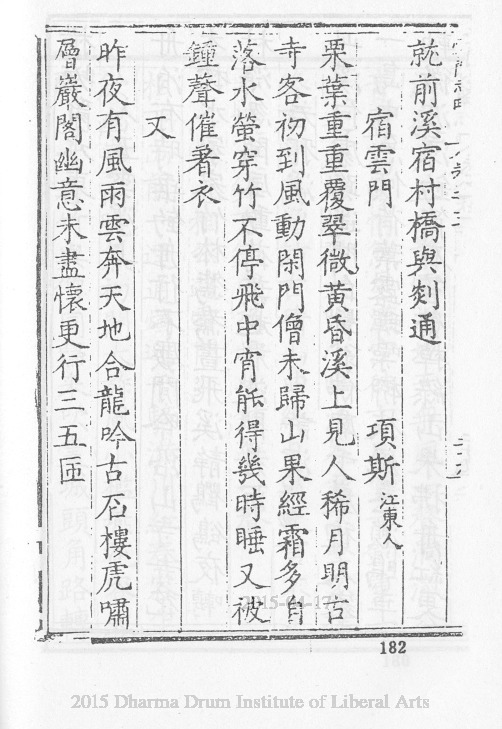 就前溪宿村橋與剡通
宿雲門　項斯江東人
栗葉重重覆翠微黃昏溪上見人稀月明古
寺客初到風動閑門僧未歸山果經霜多自
落水螢穿竹不停飛中宵能得幾時睡又被
鍾聲催著衣
又
昨夜有風雨雲奔天地合龍吟古石樓虎嘯
層巖閣幽意未盡懷更行三五匝
182
2015-04-17
2015 Dharma Drum Institute of Liberal Arts